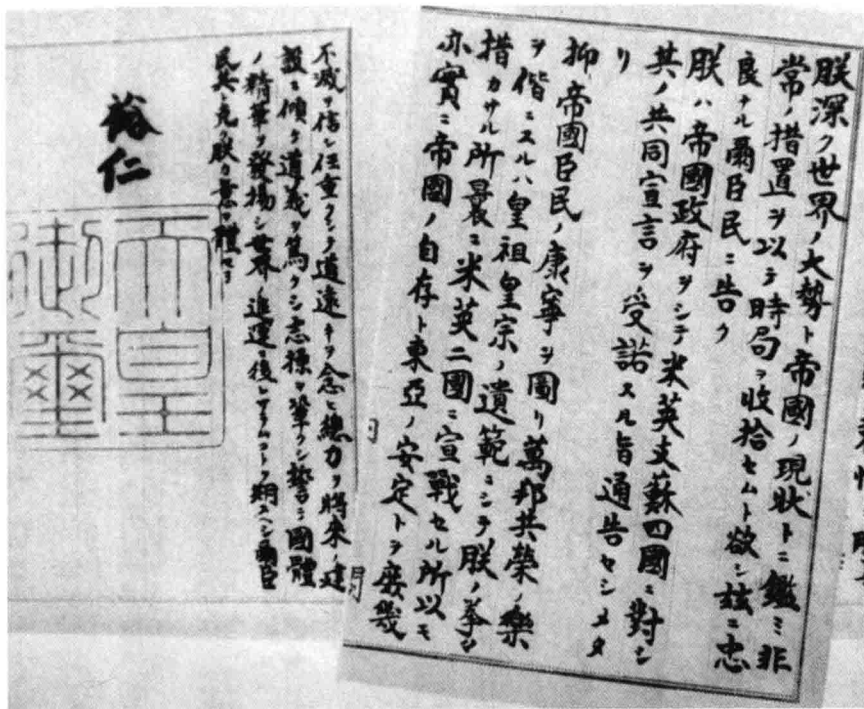 朕深ク世界ノ大勢ト帝國ノ現狀トニ鑑ミ非
常ノ措置ヲ以テ時局ヲ收拾セムト欲シ茲ニ忠
良ナル爾臣民ニ告ク
朕ハ帝國政府ヲシテ米英支蘇四國ニ對シ
其ノ共同宣言ヲ受諾スル旨通告セシメタ
リ
抑〻帝國臣民ノ康寧ヲ圖リ萬邦共榮ノ樂
ヲ偕ニスルハ皇祖皇宗ノ遺範ニシテ朕ノ拳〻
措カサル所曩ニ米英二國ニ宣戰セル所以モ
亦實ニ帝國ノ自存ト東亞ノ安定トヲ庶幾
不滅ヲ信シ任重クシテ道遠キヲ念ヒ總力ヲ將來ノ建
設ニ傾ケ道義ヲ篤クシ志操ヲ鞏クシ誓テ國體
ノ精華ヲ發揚シ世界ノ進運ニ後レサラムコトヲ期スヘシ爾臣
民其レ克ク朕カ意ヲ體セヨ
裕仁
天皇
御璽